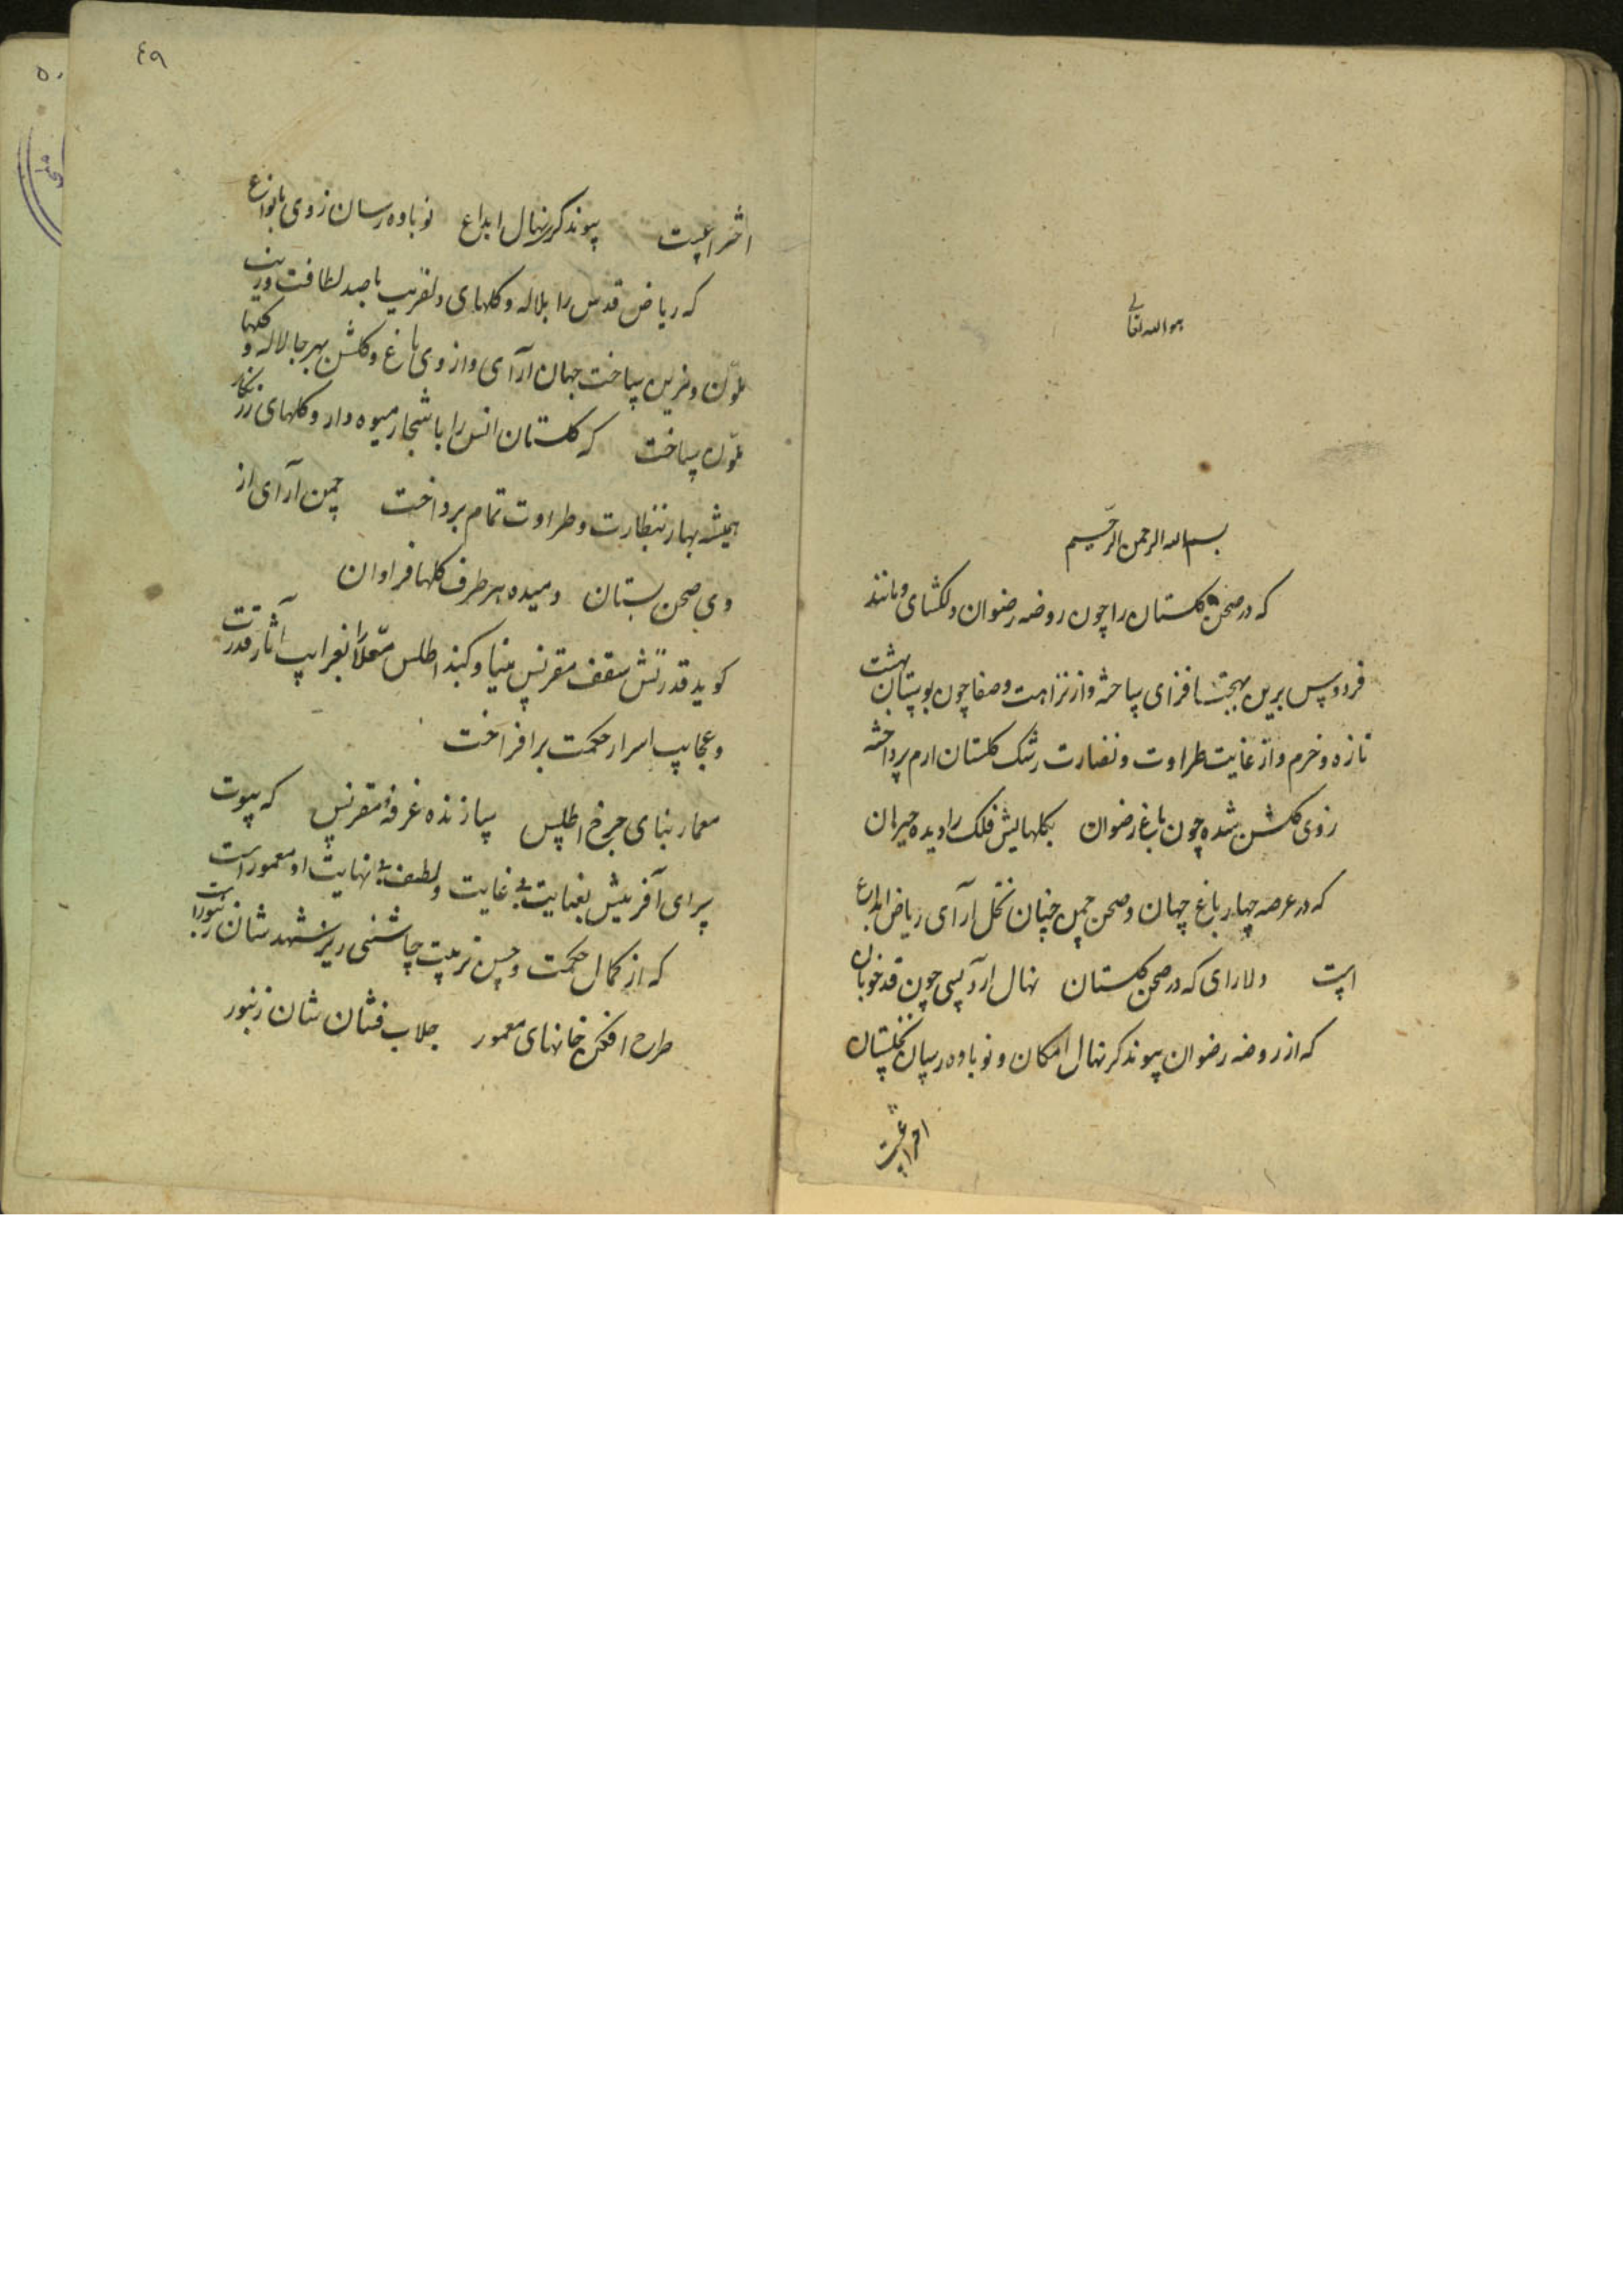 هو الله تعالی
بسم الله الرحمن الرحیم
که در صحن گلستان را چون روضه رضوان دلگشای و مانند
فردوس برین بهجت افزای ساخته و از نزاهت و صفا چون بوستان بهشت
تازه و خرم و از غایت طراوت و نضارت رشک گلستان ارم پرداخته
زوی گلشن شده چون باغ رضوان بگلهایش فلک را دیده حیران
که در عرصه چهار باغ جهان و صحن چمن جنان نخل آرای ریاض ابداع
است دلارای که در صحن گلستان نهال ارد بسی چون قد خوبان
که از روضه رضوان پیوند گر نهال امکان و نوباوه رسان نخلستان
اختراعست
٤٩
٥٠
اختراعیست پیوند گر نهال ابداع نوباوه رسان زوی بانواع
که ریاض قدس را بلاله و گلهای دلفریب با صد لطافت و زینت
ملون و مزین ساخت جهان آرای و از وی باغ و گلشن بهر جا لاله و گلها
ملون ساخت که گلستان انس را باشجار میوه دار و گلهای زرنگار
همیشه بهار بنظارت و طراوت تمام پرداخت چمن آرای از
وی صحن بستان دمیده هر طرف گلها فراوان
گوید قدرتش سقف مقرنس مینا و گنبد اطلس معلا را بغرایب آثار قدرت
و عجایب اسرار حکمت برافراخت
معمار بنای چرخ اطلس سازنده غرفه مقرنس که بیوت
سرای آفرینش بعنایت بی غایت و لطف بی نهایت او معمور است
که از کمال حکمت و حسن تربیت چاشنی ریز شهد شان زنبور است
طرح افکن خانهای معمور جلاب فشان شان زنبور